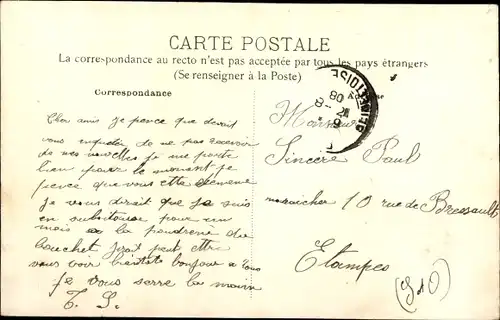 CARTE POSTALE
La correspondance au recto n'est pas acceptée par tous les pays étrangers
(Se renseigner à la Poste)
Correspondance
Cher amis je pence que devait
vous de ne pas recevoir
de mes nouvelles je me porte
bien pour le moment je
pence que vous ette de meme
je vous dirait que je suis
en pour un
mois a la poudrerie du
bouchet jirait peut ettre
vous voir bientot bonjour a tous
je vous serre la main
T. S.
Adresse
Monsieur
Sincère Paul
maraicher 10 rue de Bressault
Etampes
(S&O)